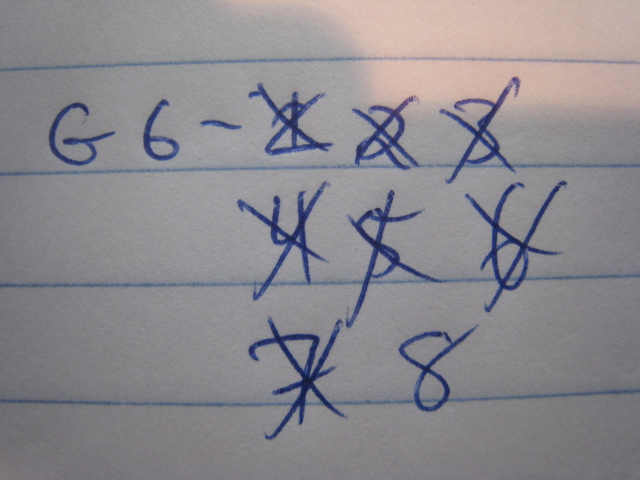 G6-1 2 3
4 5 6
7 8